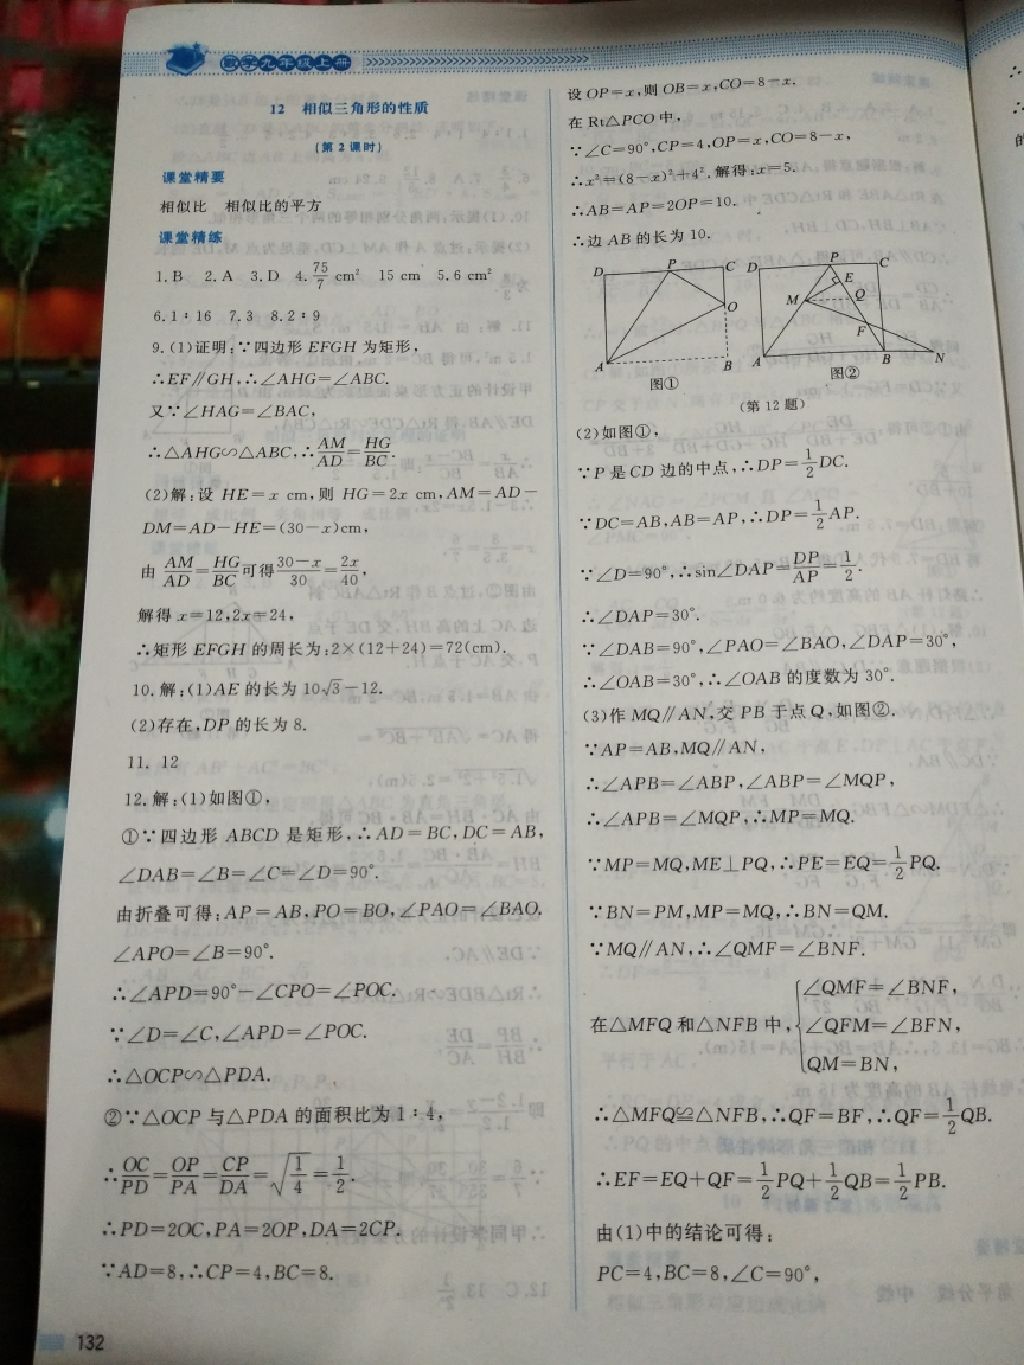 数学九年级上册
12 相似三角形的性质
(第2课时)
课堂精要
相似比 相似比的平方
课堂精练
1.B 2.A 3.D 4.75/7 cm² 15 cm 5.6 cm²
6.1∶16 7.3 8.2∶9
9.(1)证明:∵四边形 EFGH 为矩形,
∴EF∥GH,∴∠AHG=∠ABC.
又∵∠HAG=∠BAC,
∴△AHG∽△ABC,∴AM/AD=HG/BC.
(2)解:设 HE=x cm,则 HG=2x cm,AM=AD-
DM=AD-HE=(30-x)cm,
由 AM/AD=HG/BC可得(30-x)/30=2x/40,
解得 x=12,2x=24,
∴矩形 EFGH 的周长为:2×(12+24)=72(cm).
10.解:(1)AE 的长为 10√3-12.
(2)存在,DP 的长为 8.
11. 12
12.解:(1)如图①,
①∵四边形 ABCD 是矩形,∴AD=BC,DC=AB,
∠DAB=∠B=∠C=∠D=90°.
由折叠可得:AP=AB,PO=BO,∠PAO=∠BAO.
∠APO=∠B=90°.
∴∠APD=90°-∠CPO=∠POC.
∵∠D=∠C,∠APD=∠POC.
∴△OCP∽△PDA.
②∵△OCP 与△PDA 的面积比为 1∶4,
∴OC/PD=OP/PA=CP/DA=√(1/4)=1/2.
∴PD=2OC,PA=2OP,DA=2CP.
∵AD=8,∴CP=4,BC=8.
132
设 OP=x,则 OB=x,CO=8-x.
在 Rt△PCO 中,
∵∠C=90°,CP=4,OP=x,CO=8-x,
∴x²=(8-x)²+4².解得:x=5.
∴AB=AP=2OP=10.
∴边 AB 的长为 10.
D P C D P C
E
M Q
O
F
A B A B N
图① 图②
(第 12 题)
(2)如图①,
∵P 是 CD 边的中点,∴DP=1/2DC.
∵DC=AB,AB=AP,∴DP=1/2AP.
∵∠D=90°,∴sin∠DAP=DP/AP=1/2.
∴∠DAP=30°.
∵∠DAB=90°,∠PAO=∠BAO,∠DAP=30°,
∴∠OAB=30°,∴∠OAB 的度数为 30°.
(3)作 MQ∥AN,交 PB 于点 Q,如图②.
∵AP=AB,MQ∥AN,
∴∠APB=∠ABP,∠ABP=∠MQP,
∴∠APB=∠MQP,∴MP=MQ.
∵MP=MQ,ME⊥PQ,∴PE=EQ=1/2PQ.
∵BN=PM,MP=MQ,∴BN=QM.
∵MQ∥AN,∴∠QMF=∠BNF.
∠QMF=∠BNF,
在△MFQ 和△NFB 中,{∠QFM=∠BFN,
QM=BN,
∴△MFQ≌△NFB,∴QF=BF,∴QF=1/2QB.
∴EF=EQ+QF=1/2PQ+1/2QB=1/2PB.
由(1)中的结论可得:
PC=4,BC=8,∠C=90°,